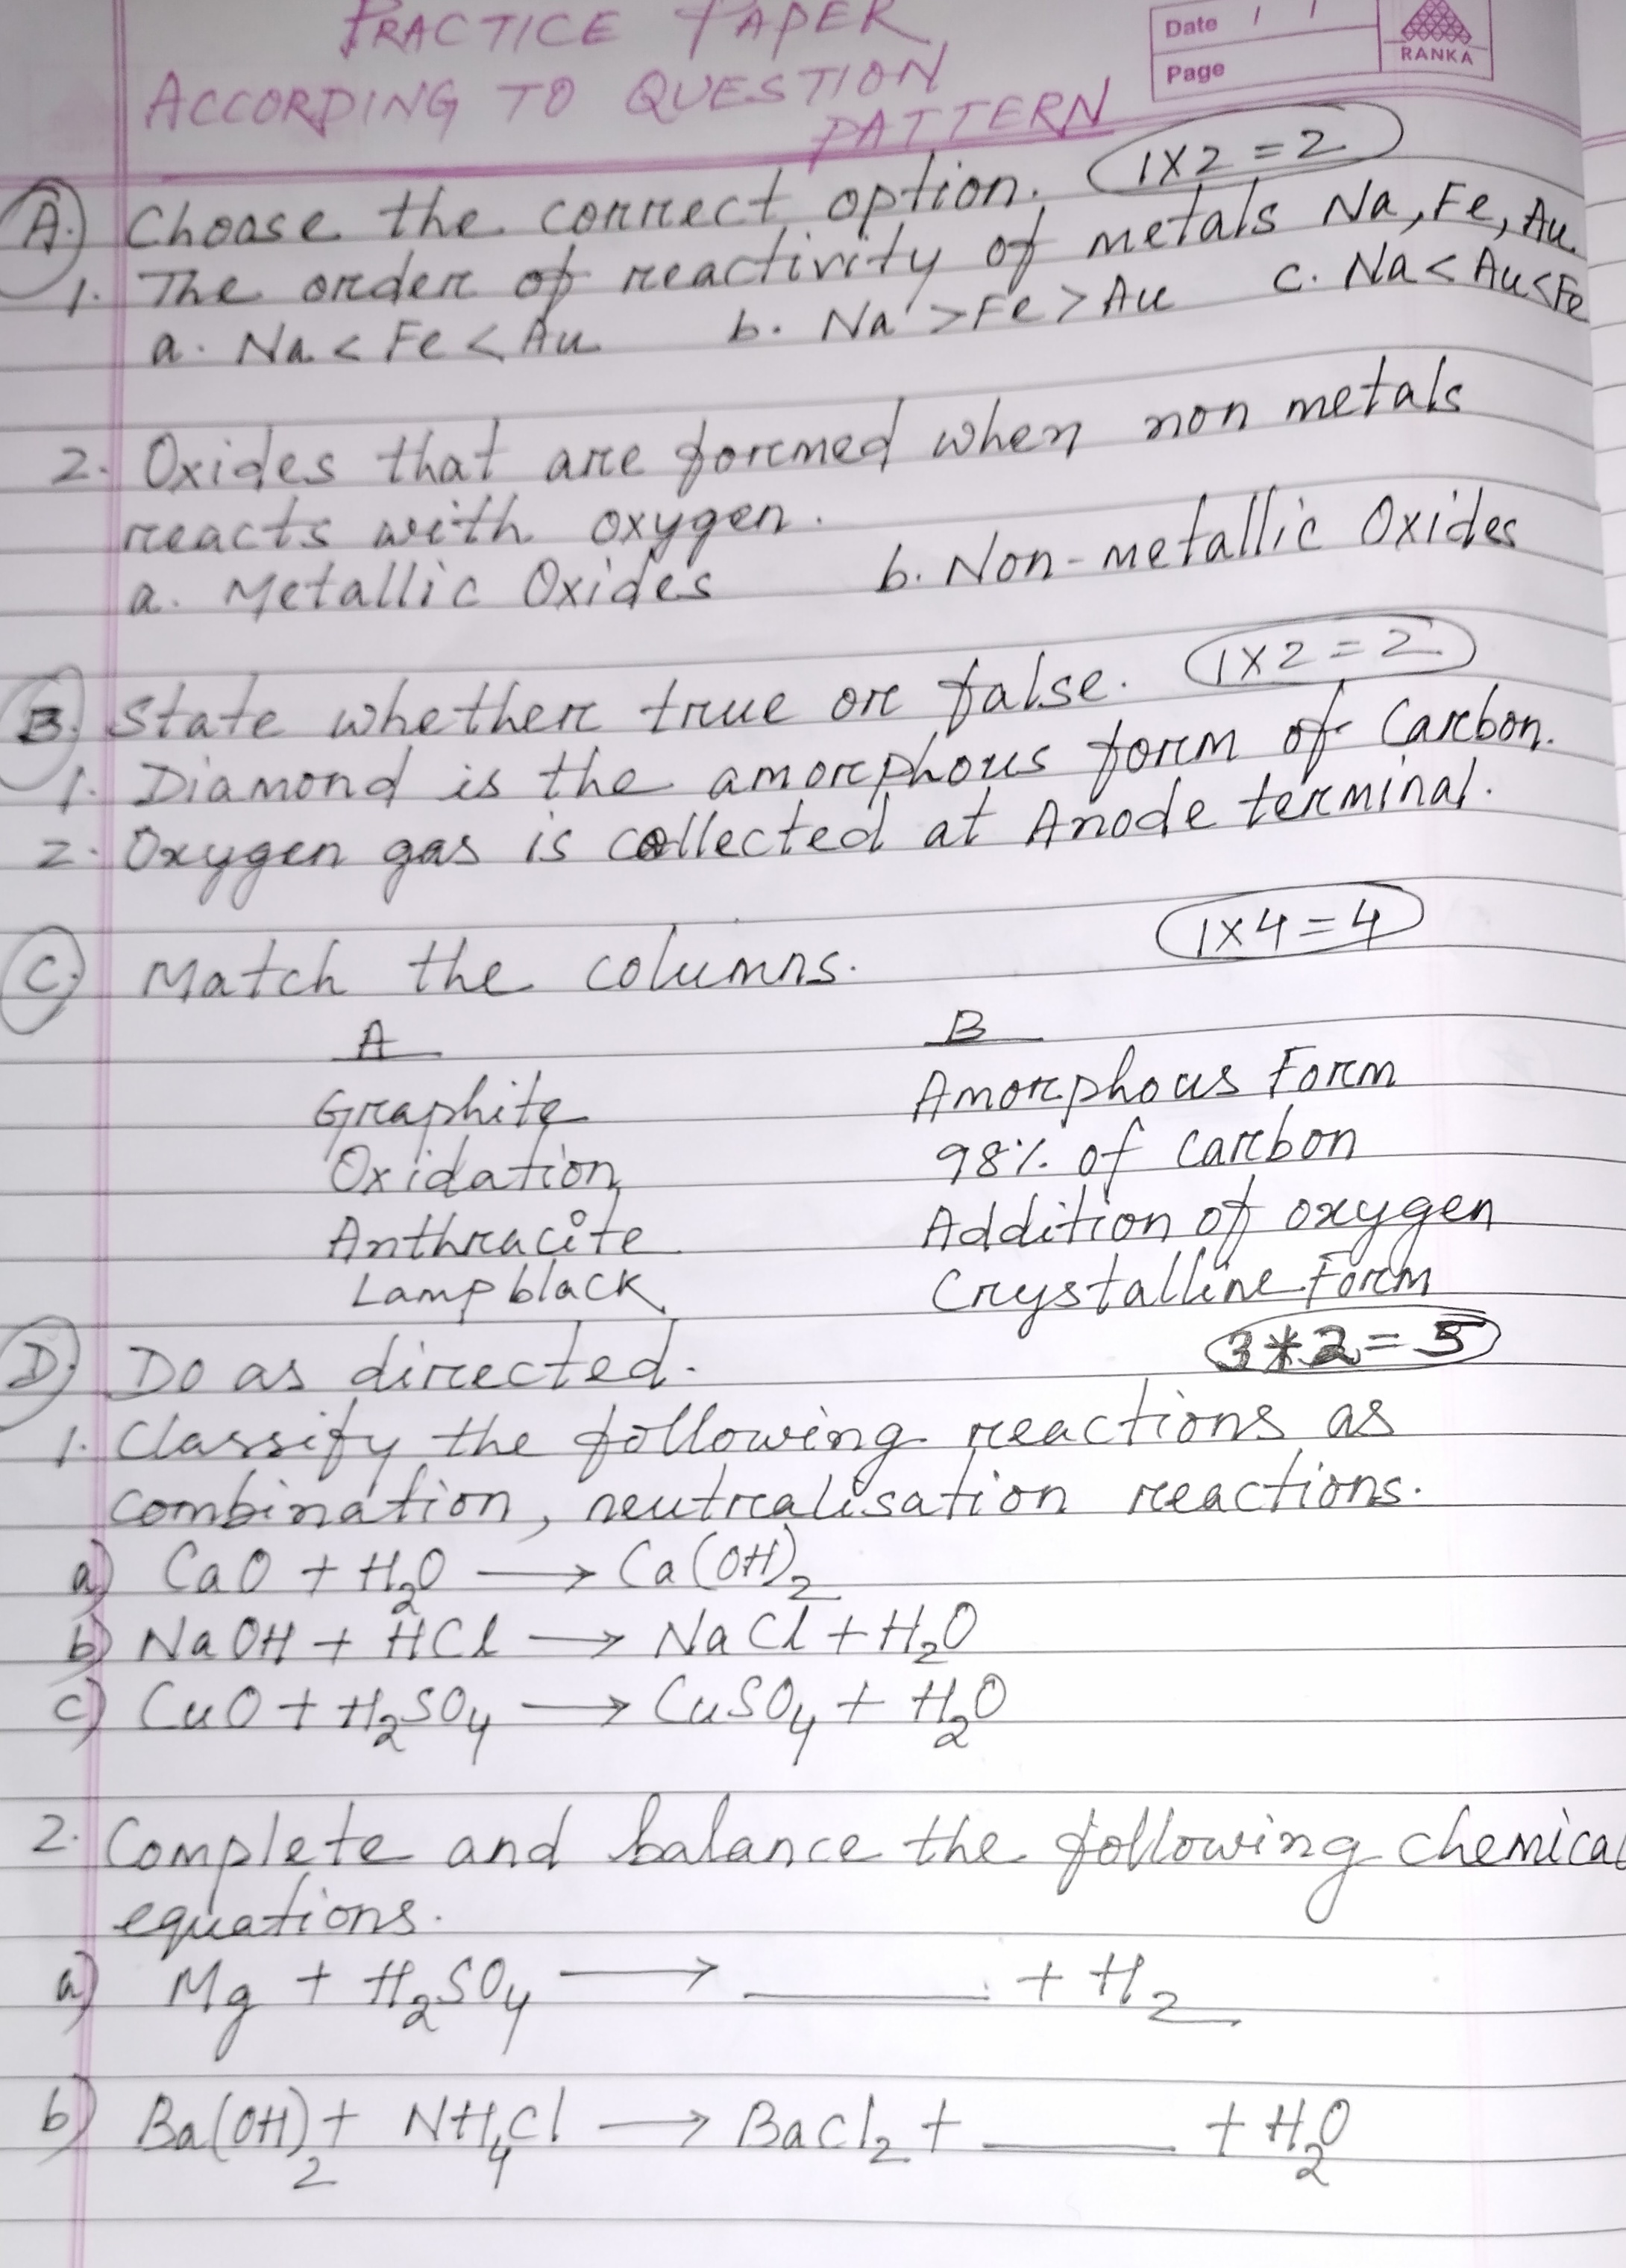 PRACTICE PAPER
ACCORDING TO QUESTION
PATTERN
Date / /
Page
RANKA
A. Choose the correct option. 1X2 = 2
1. The order of reactivity of metals Na, Fe, Au
a. Na < Fe < Au b. Na > Fe > Au c. Na < Au < Fe
2. Oxides that are formed when non metals
reacts with oxygen.
a. Metallic Oxides b. Non-metallic Oxides
B. State whether true or false. 1X2 = 2
1. Diamond is the amorphous form of Carbon.
2. Oxygen gas is collected at Anode terminal.
C. Match the columns. 1x4 = 4
A B
Graphite Amorphous Form
Oxidation 98% of carbon
Anthracite Addition of oxygen
Lampblack Crystalline Form
D. Do as directed. 3*2 = 5
1. Classify the following reactions as
combination, neutralisation reactions.
a) CaO + H₂O → Ca(OH)₂
b) NaOH + HCl → NaCl + H₂O
c) CuO + H₂SO₄ → CuSO₄ + H₂O
2. Complete and balance the following chemical
equations.
a) Mg + H₂SO₄ → ______ + H₂
b) Ba(OH)₂ + NH₄Cl → BaCl₂ + ______ + H₂O